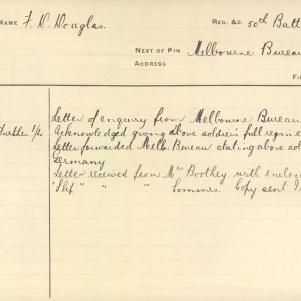 NAME F. D. Douglas. REG. &C. 50th Batt
NEXT OF KIN Melbourne Bureau
ADDRESS
Letter of enquiry from Melbourne Bureau
Acknowledged giving above soldiers full regim
Letter forwarded Melb. Bureau stating above sol
Germany
Letter received from Mrs Boothey with enclos
"Slip" " " Sommes. Copy sent